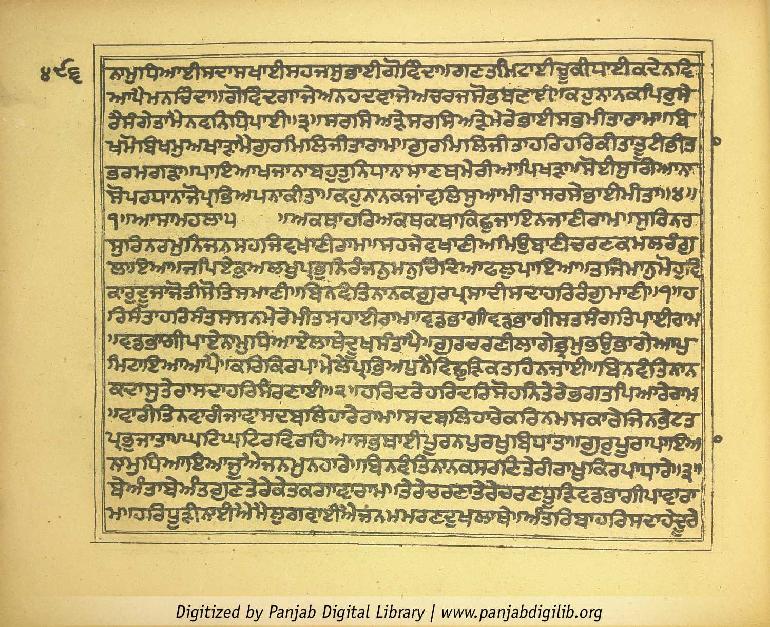 ੪੯੬
ਨਾਮੁਧਿਆਈਸਦਾਸਖਾਈਸਹਜਸੁਭਾਈਗੋਵਿੰਦਾ॥ਗਣਤਮਿਟਾਈਚੂਕੀਧਾਈਕਦੇਨਵਿ
ਆਪੈਮਨਚਿੰਦਾ॥ਗੋਵਿੰਦਗਾਜੇਅਨਹਦਵਾਜੇਅਚਰਜਸੋਭਬਣਾਈ॥ਕਹੁਨਾਨਕਪਿਰੁਮੇ
ਰੈਸੰਗੇਤਾਮੈਨਵਨਿਧਿਪਾਈ॥੩॥ਸਰਸਿਅੜੇਸਰਸਿਅੜੇਮੇਰੇਭਾਈਸਭਮੀਤਾਰਾਮ॥ਬਿ
ਖਮੋਬਿਖਮੁਅਖਾੜਾਮੈਗੁਰਮਿਲਿਜੀਤਾਰਾਮ॥ਗੁਰਮਿਲਿਜੀਤਾਹਰਿਹਰਿਕੀਤਾਤੂਟੀਭੀਤਾ
ਭਰਮਗੜਾ॥ਪਾਇਆਖਜਾਨਾਬਹੁਤੁਨਿਧਾਨਾਸਾਣਥਮੇਰੀਆਪਿਖੜਾ॥ਸੋਈਸੁਗਿਆਨਾ
ਸੋਪਰਧਾਨਾਜੋਪ੍ਰਭਿਅਪਨਾਕੀਤਾ॥ਕਹੁਨਾਨਕਜਾਂਵਲਿਸੁਆਮੀਤਾਸਰਸੇਭਾਈਮੀਤਾ॥੪॥
੧॥ਆਸਾਮਹਲਾ੫ ॥ਅਕਥਾਹਰਿਅਕਥਕਥਾਕਿਛੁਜਾਇਨਜਾਣੀਰਾਮ॥ਸੁਰਿਨਰ
ਸੁਰਿਨਰਮੁਨਿਜਨਸਹਜਿਵਖਾਣੀਰਾਮ॥ਸਹਜੇਵਖਾਣੀਅਮਿਉਬਾਣੀਚਰਣਕਮਲਰੰਗੁ
ਲਾਇਆ॥ਜਪਿਏਕੁਅਲਖੁਪ੍ਰਭੁਨਿਰੰਜਨੁਮਨਚਿੰਦਿਆਫਲੁਪਾਇਆ॥ਤਜਿਮਾਨੁਮੋਹੁਵਿ
ਕਾਰੁਦੂਜਾਜੋਤੀਜੋਤਿਸਮਾਣੀ॥ਬਿਨਵੰਤਿਨਾਨਕਗੁਰਪ੍ਰਸਾਦੀਸਦਾਹਰਿਰੰਗੁਮਾਣੀ॥੧॥ਹ
ਰਿਸੰਤਾਹਰਿਸੰਤਸਜਨਮੇਰੇਮੀਤਸਹਾਈਰਾਮ॥ਵਡਭਾਗੀਵਡਭਾਗੀਸਤਸੰਗਤਿਪਾਈਰਾਮ
॥ਵਡਭਾਗੀਪਾਏਨਾਮੁਧਿਆਏਲਾਥੇਦੂਖਸੰਤਾਪੈ॥ਗੁਰਚਰਣੀਲਾਗੇਭ੍ਰਮਭਉਭਾਗੇਆਪੁ
ਮਿਟਾਇਆਆਪੈ॥ਕਰਿਕਿਰਪਾਮੇਲੇਪ੍ਰਭਿਅਪੁਨੈਵਿਛੁੜਿਕਤਾਹਿਨਜਾਈ॥ਬਿਨਵੰਤਿਨਾਨ
ਕਦਾਸੁਤੇਰਾਸਦਾਹਰਿਸਰਣਾਈ॥੨॥ਹਰਿਦਰੇਹਰਿਦਰਿਸੋਹਨਿਤੇਰੇਭਗਤਪਿਆਰੇਰਾਮ
॥ਵਾਰੀਤਿਨਵਾਰੀਜਾਵਾਸਦਬਲਿਹਾਰੇਰਾਮ॥ਸਦਬਲਿਹਾਰੇਕਰਿਨਮਸਕਾਰੇਜਿਨਭੇਟਤ
ਪ੍ਰਭੁਜਾਤਾ॥ਘਟਿਘਟਿਰਵਿਰਹਿਆਸਭਥਾਈਪੂਰਨਪੁਰਖੁਬਿਧਾਤਾ॥ਗੁਰੁਪੂਰਾਪਾਇਆ
ਨਾਮੁਧਿਆਇਆਜੂਐਜਨਮੁਨਹਾਰੇ॥ਬਿਨਵੰਤਿਨਾਨਕਸਰਣਿਤੇਰੀਰਾਖੁਕਿਰਪਾਧਾਰੇ॥੩॥
ਬੇਅੰਤਾਬੇਅੰਤਗੁਣਤੇਰੇਕੇਤਕਗਾਵਾਰਾਮ॥ਤੇਰੇਚਰਣਾਤੇਰੇਚਰਣਧੂੜਿਵਡਭਾਗੀਪਾਵਾਰਾ
ਮ॥ਹਰਿਧੂੜੀਨਾਈਐਮੈਲੁਗਵਾਈਐਜਨਮਮਰਣਦੁਖਲਾਥੇ॥ਅੰਤਰਿਬਾਹਰਿਸਦਾਹਦੂਰੇ
Digitized by Panjab Digital Library | www.panjabdigilib.org